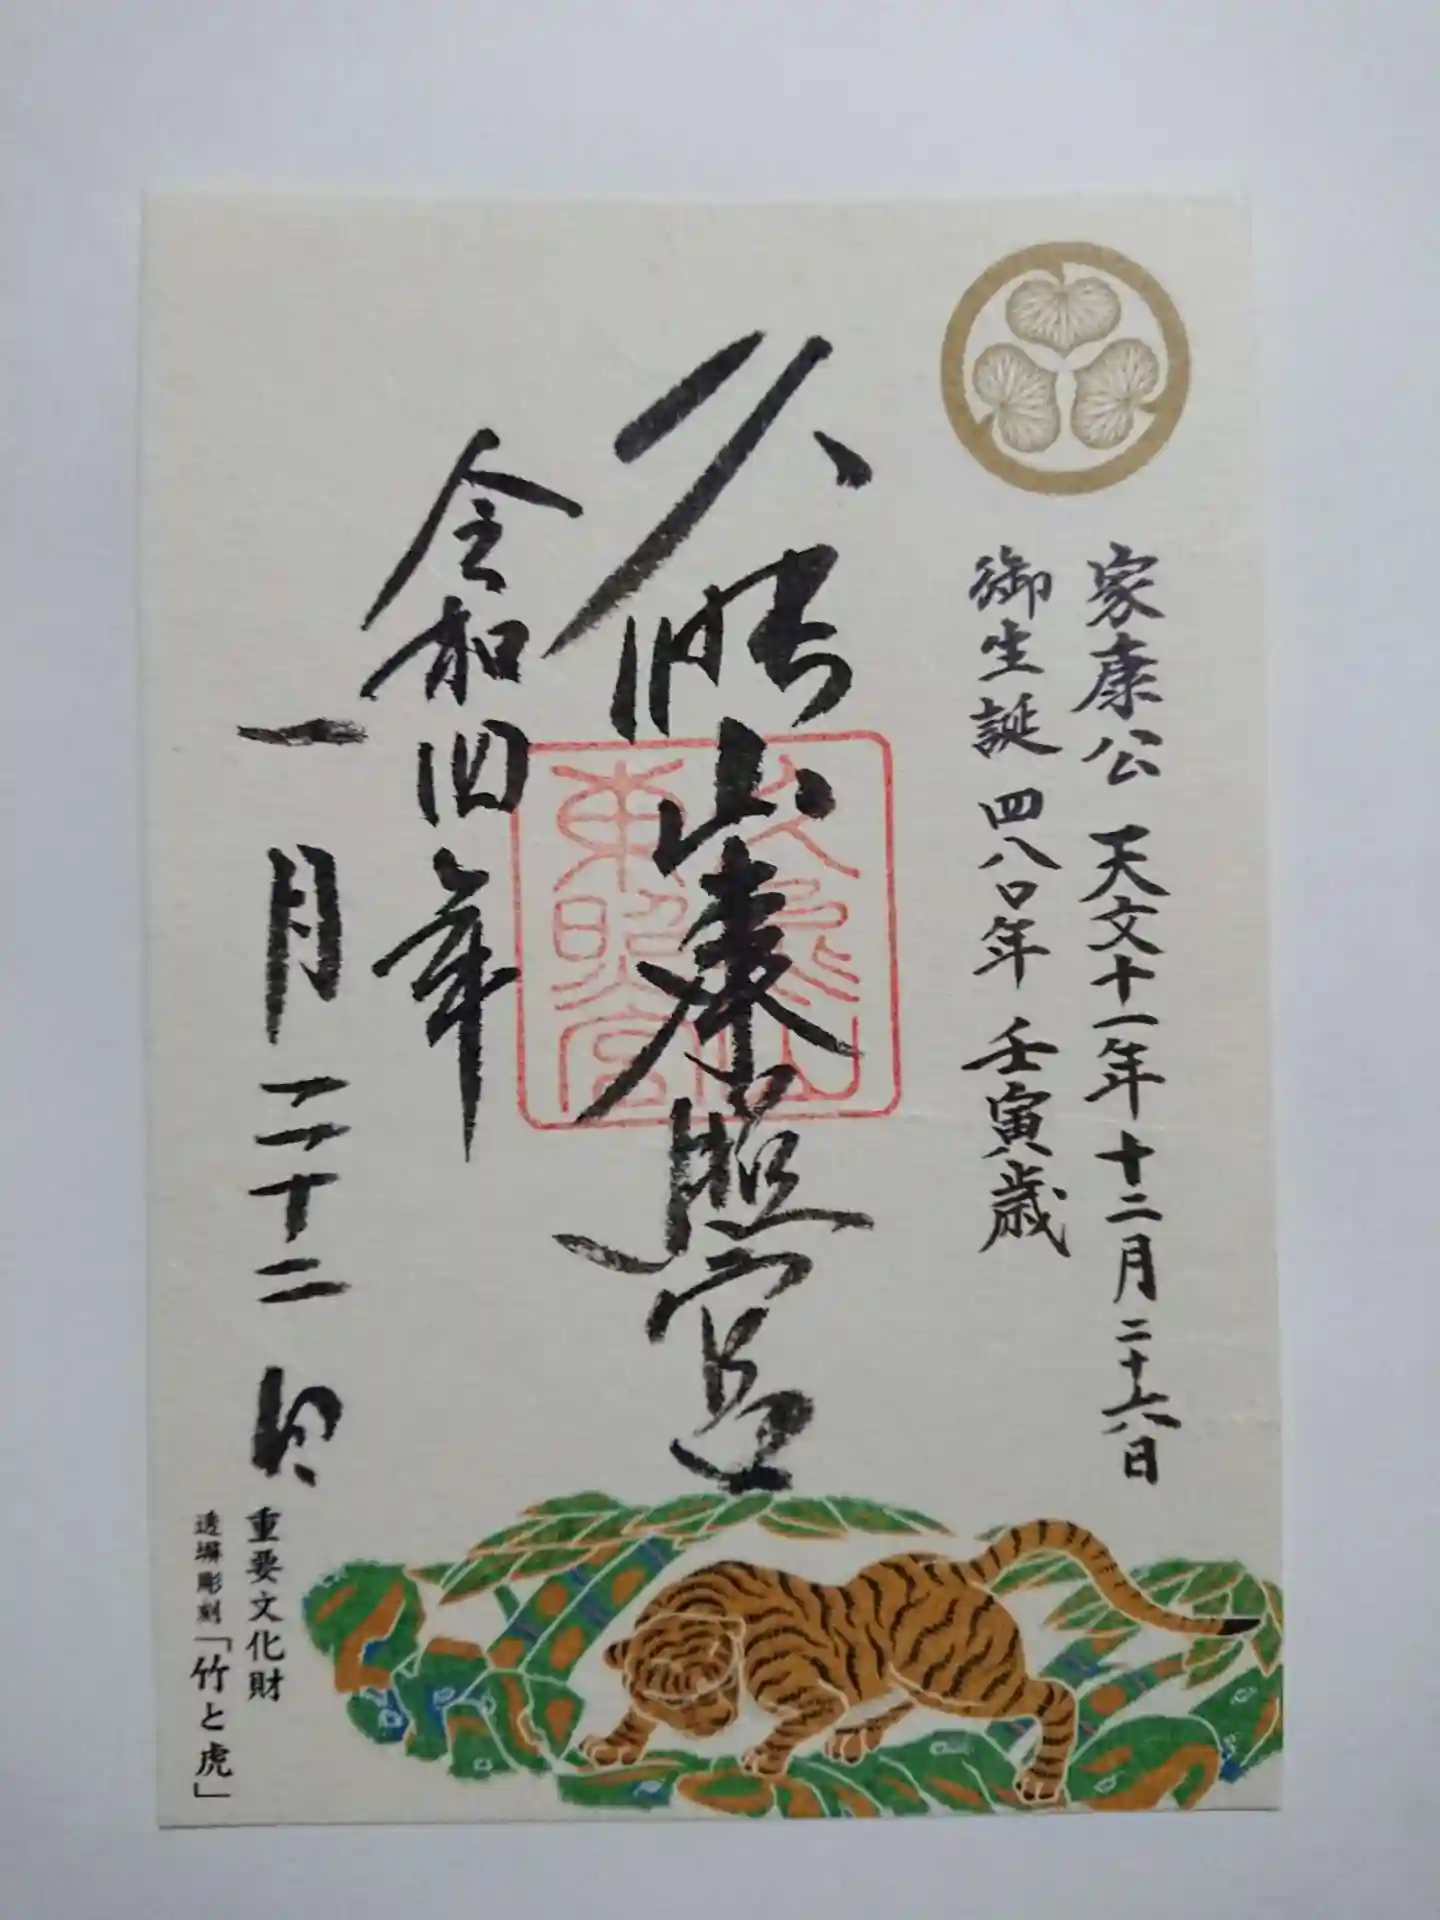 家康公 天文十一年十二月二十六日
御生誕 四八〇年 壬寅歳
久能山東照宮
久能山
東照宮
令和四年
一月二十二日
重要文化財
透塀彫刻「竹と虎」